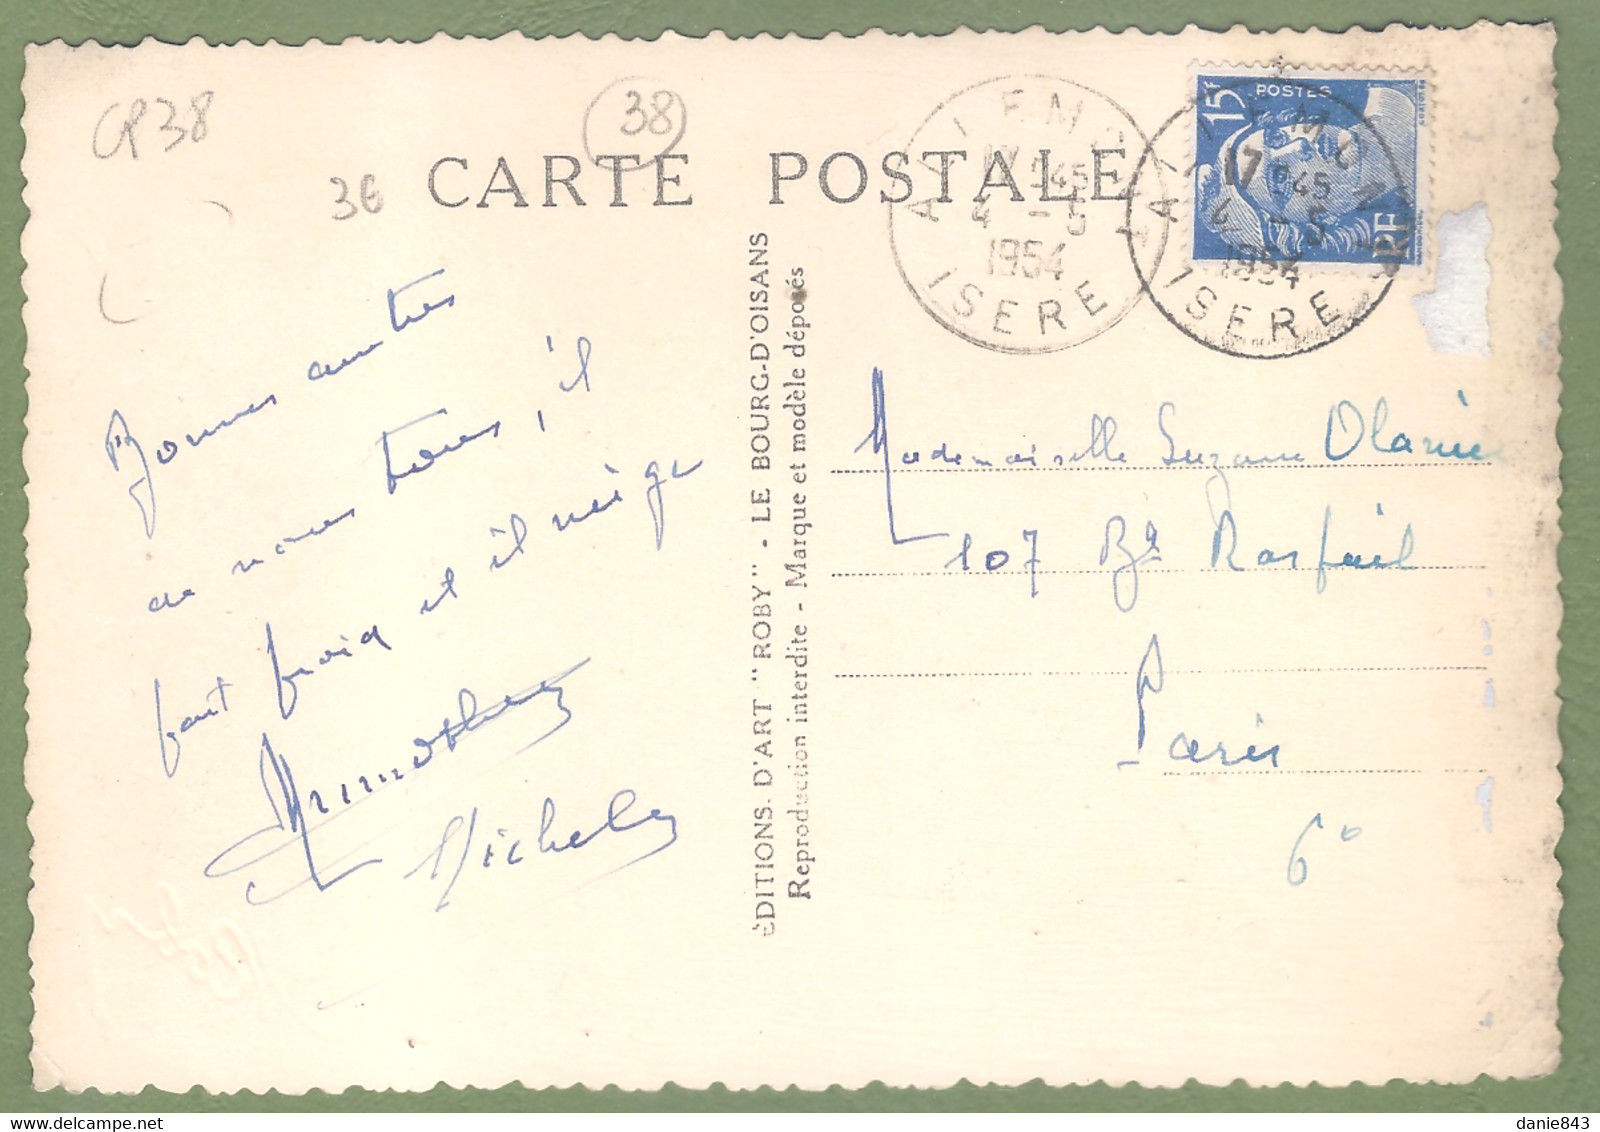 CP38
38
3€
CARTE POSTALE
15F
POSTES
RF
17 45
4 - 5
1954
ISERE
17 45
4 - 5
1954
ISERE
Bonnes amitiés
de nous tous, il
fait froid et il neige
Michel
ÉDITIONS D'ART "ROBY" - LE BOURG-D'OISANS
Reproduction interdite - Marque et modèle déposés
Mademoiselle Suzanne
107 Bd Raspail
Paris
6°
Roby
danie843